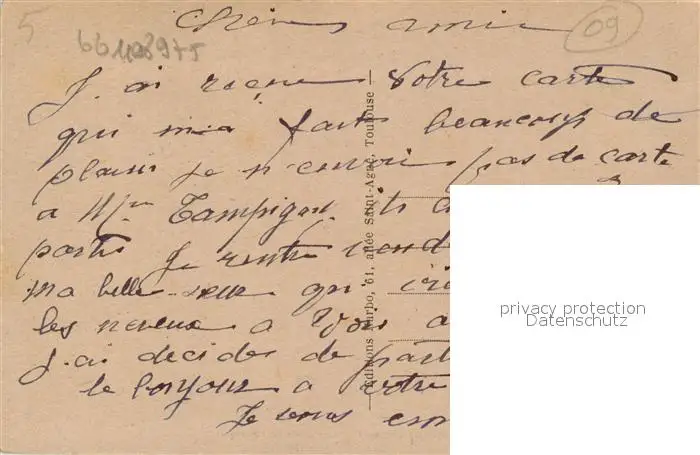 5
66408975
09
Chère amie
J'ai reçue votre carte
qui m'a fait beaucoup de
plaisir je n'envoi pas de carte
a Mme
partis je rentre
ma belle-sœur qui
les neveux a voir a
J'ai decider de part
le bonjour a votre
Je vous
Editions Narbo, 61, allée Saint-Agne, Toulouse
privacy protection
Datenschutz